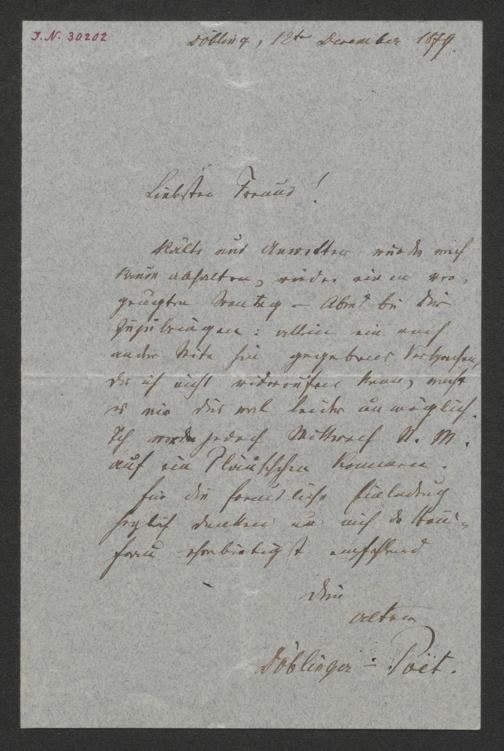 J. N. 30202
Döbling, 12te December 1879.
Liebster Freund!
Kälte und Unwetter würden mich
kaum abhalten, wieder einen ver-
gnügten Montag - Abend bei Dir
zuzubringen: allein ein nach
andrer Seite hin gegebenes Versprechen,
das ich nicht widerrufen kann, macht
es mir dies mal leider unmöglich.
Ich werde jedoch Mittwoch N. M.
auf ein Plauschchen kommen.
Für die freundliche Einladung
herzlich dankend und mich der Haus-
frau ehrerbietigst empfehlend
Dein
alter
Döblinger - Poët.